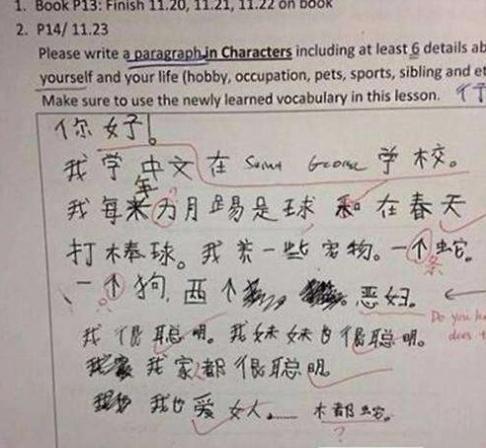 1. Book P13: Finish 11.20, 11.21, 11.22 on book
2. P14/ 11.23
Please write a paragraph in Characters including at least 6 details ab
yourself and your life (hobby, occupation, pets, sports, sibling and et
Make sure to use the newly learned vocabulary in this lesson.
你好!
我学中文在 学校。
年
我每米万月踢是球和在春天
打棒球。我养一些宠物。一个蛇。
条
一个狗, 两个 恶妇。
Do you ha
我很聪明。我妹妹也很聪明。
does
我家都很聪明
我也爱女人。